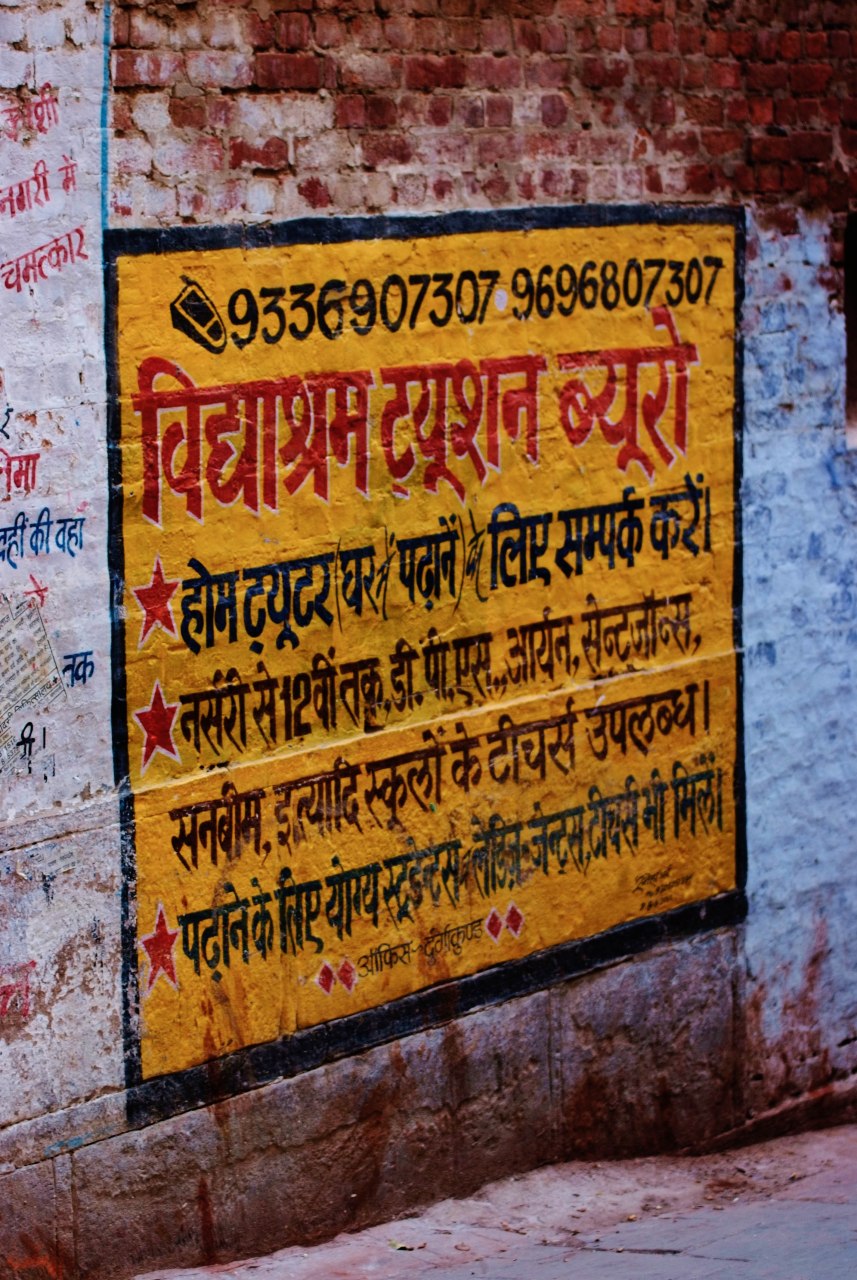 नगरी में
चमत्कार
वहीं की वहां
तक
9336907307 • 9696807307
विद्याश्रम ट्यूशन ब्यूरो
★ होम ट्यूटर (घर में पढ़ानें) के लिए सम्पर्क करें।
★ नर्सरी से 12वीं तक, डी. पी. एस., आर्यन, सेन्टजॉन्स,
सनबीम, इत्यादि स्कूलों के टीचर्स उपलब्ध।
★ पढ़ाने के लिए योग्य स्टूडेन्टस लेडिज जेन्ट्स, टीचर्स भी मिलें।
ऑफिस - दुर्गाकुण्ड